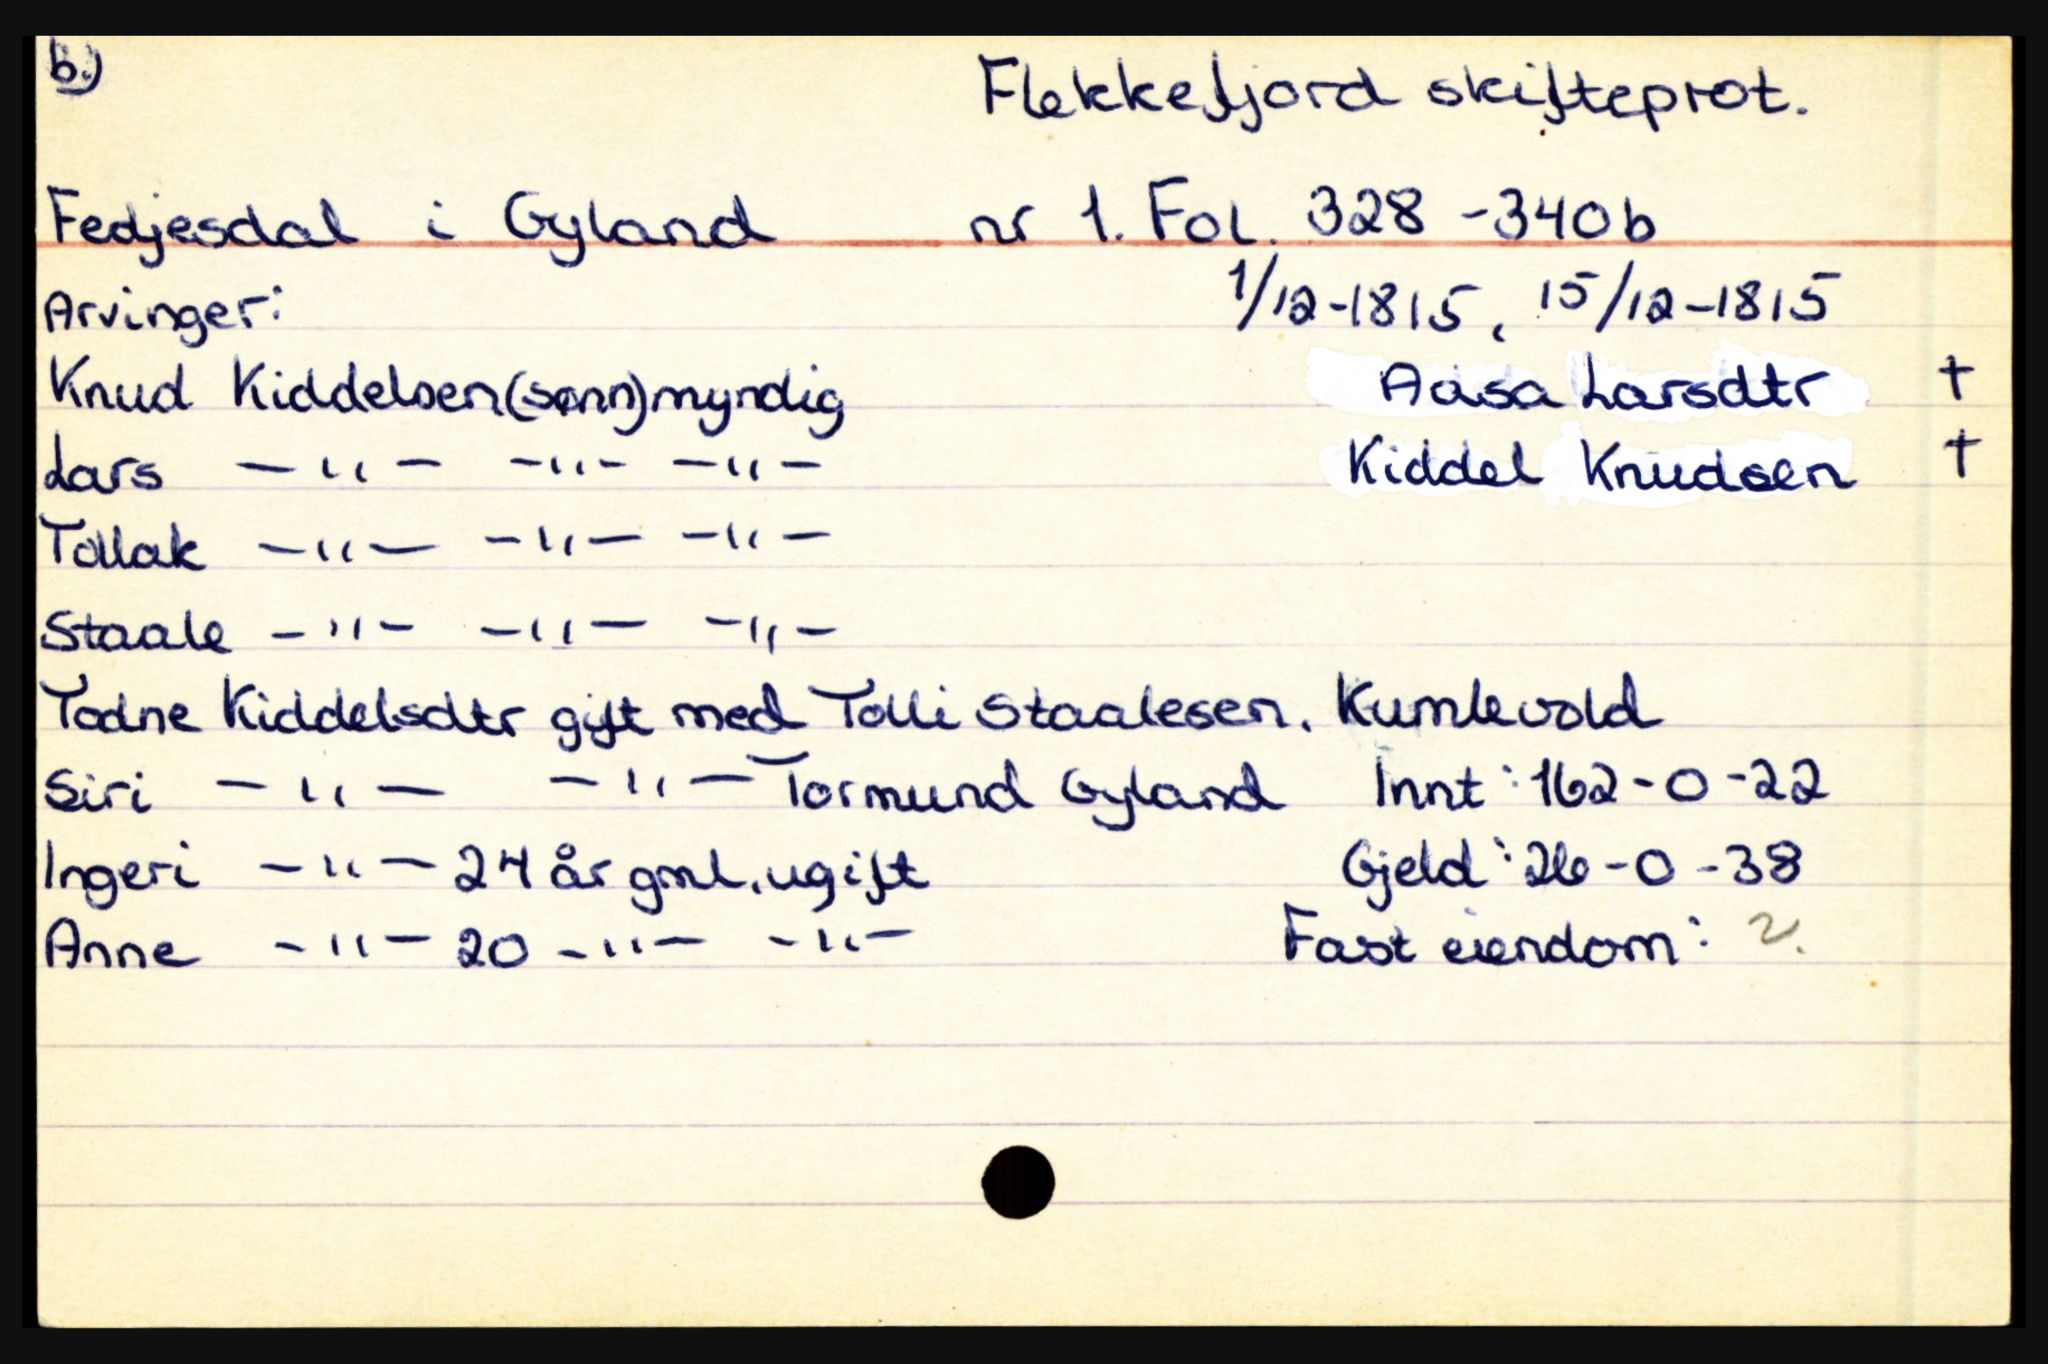 b.)
Flekkefjord skifteprot.
Fedjesdal i Gyland nr 1. Fol. 328 - 340b
Arvinger: 1/12-1815, 15/12-1815
Knud Kiddelsen (sønn) myndig Aasa Larsdtr †
Lars -"- -"- -"- Kiddel Knudsen †
Tollak -"- -"- -"-
Staale -"- -"- -"-
Todne Kiddelsdtr gift med Tolli Staalesen. Kumlevold
Siri -"- -"- Tormund Gyland Innt: 162-0-22
Ingeri -"- 24 år gml. ugift Gjeld: 26-0-38
Anne -"- 20 -"- -"- Fast eiendom: 2.